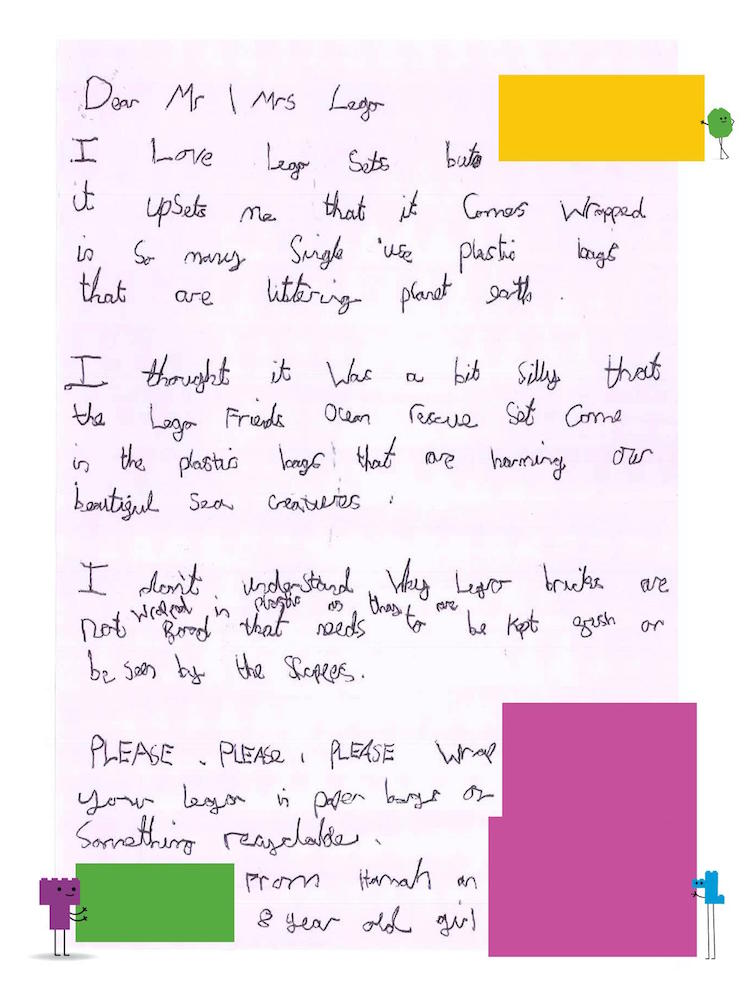 Dear Mr / Mrs Lego
I Love Lego Sets but
it upSets me that it Comes Wrapped
in So many Single use plastic bags
that are littering planet earth .
I thought it Was a bit Silly that
the Lego Friends Ocean rescue Set Come
in the plastic bags that are harming our
beautiful Sea creatures .
I don't understand Why Lego bricks are
wrapped in plastic as they are
not Food that needs to be kept fresh or
be Seen by the
PLEASE , PLEASE , PLEASE Wrap
your lego in paper bags or
Something recyclable .
From Hannah an
8 year old girl